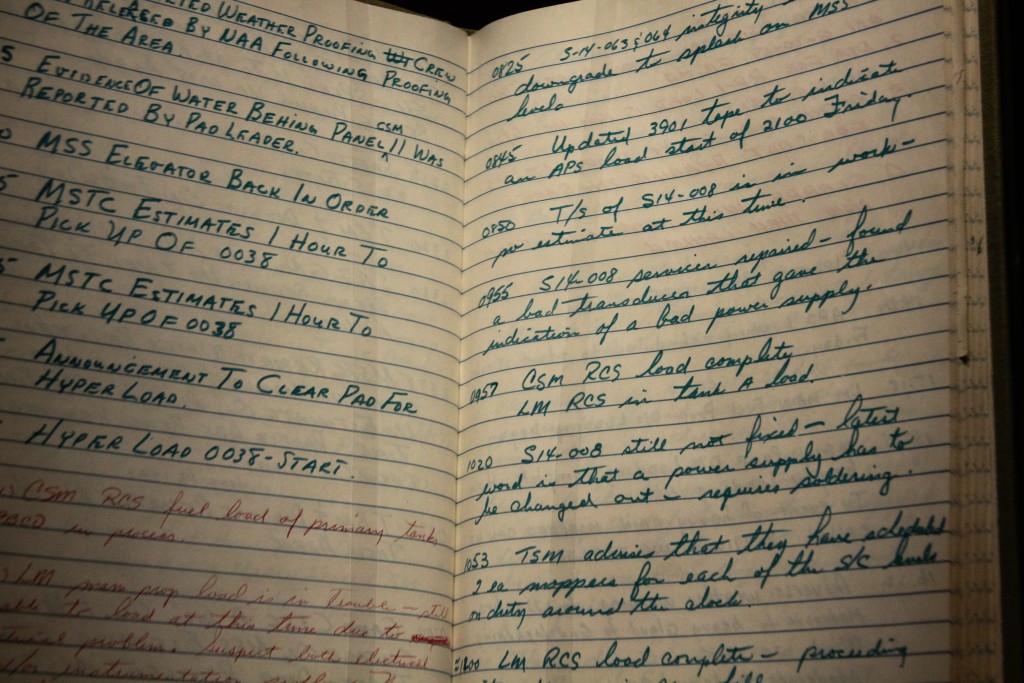 WEATHER PROOFING CREW
RELEASED BY NAA FOLLOWING PROOFING
OF THE AREA.
5 EVIDENCE OF WATER BEHING PANEL CSM 11 WAS
REPORTED BY PAD LEADER.
0 MSS ELEVATOR BACK IN ORDER
5 MSTC ESTIMATES 1 HOUR TO
PICK UP OF 0038
5 MSTC ESTIMATES 1 HOUR TO
PICK UP OF 0038
ANNOUNCEMENT TO CLEAR PAD FOR
HYPER LOAD.
HYPER LOAD 0038-START.
CSM RCS fuel load of primary tanks
ABCD in process.
LM main prop load is in trouble - still
to load at this time due to
problem. Suspect both electrical
instrumentation
0825 S-14-063 & 064 integrity
downgrade to splash on MSS
levels
0845 Updated 3901 tape to indicate
an APS load start of 2100 Friday.
0850 T/S of S14-008 is in work-
no estimate at this time.
0955 S14-008 servicer repaired - found
a bad transducer that gave the
indication of a bad power supply.
0957 CSM RCS load complete
LM RCS in tank A load.
1020 S14-008 still not fixed - latest
word is that a power supply has to
be changed out - requires soldering.
1053 TSM advises that they have scheduled
2 ea moppers for each of the S/C levels
on duty around the clock.
1100 LM RCS load complete - proceeding